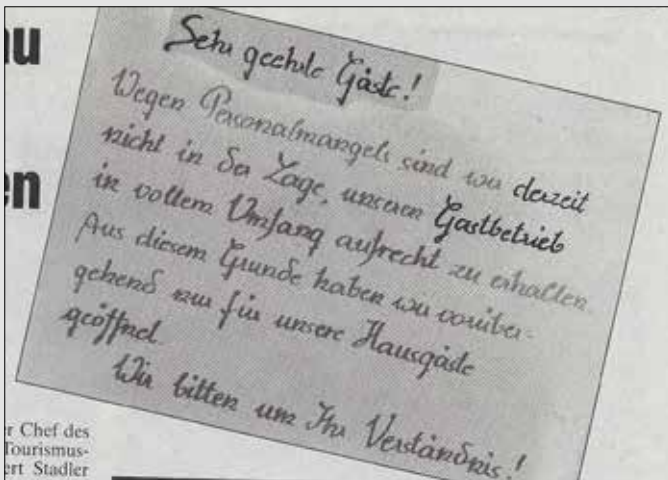 au
en
Sehr geehrte Gäste!
Wegen Personalmangels sind wir derzeit
nicht in der Lage, unseren Gastbetrieb
in vollem Umfang aufrecht zu erhalten.
Aus diesem Grunde haben wir vorüber-
gehend nur für unsere Hausgäste
geöffnet.
Wir bitten um Ihr Verständnis!
r Chef des
Tourismus-
ert Stadler